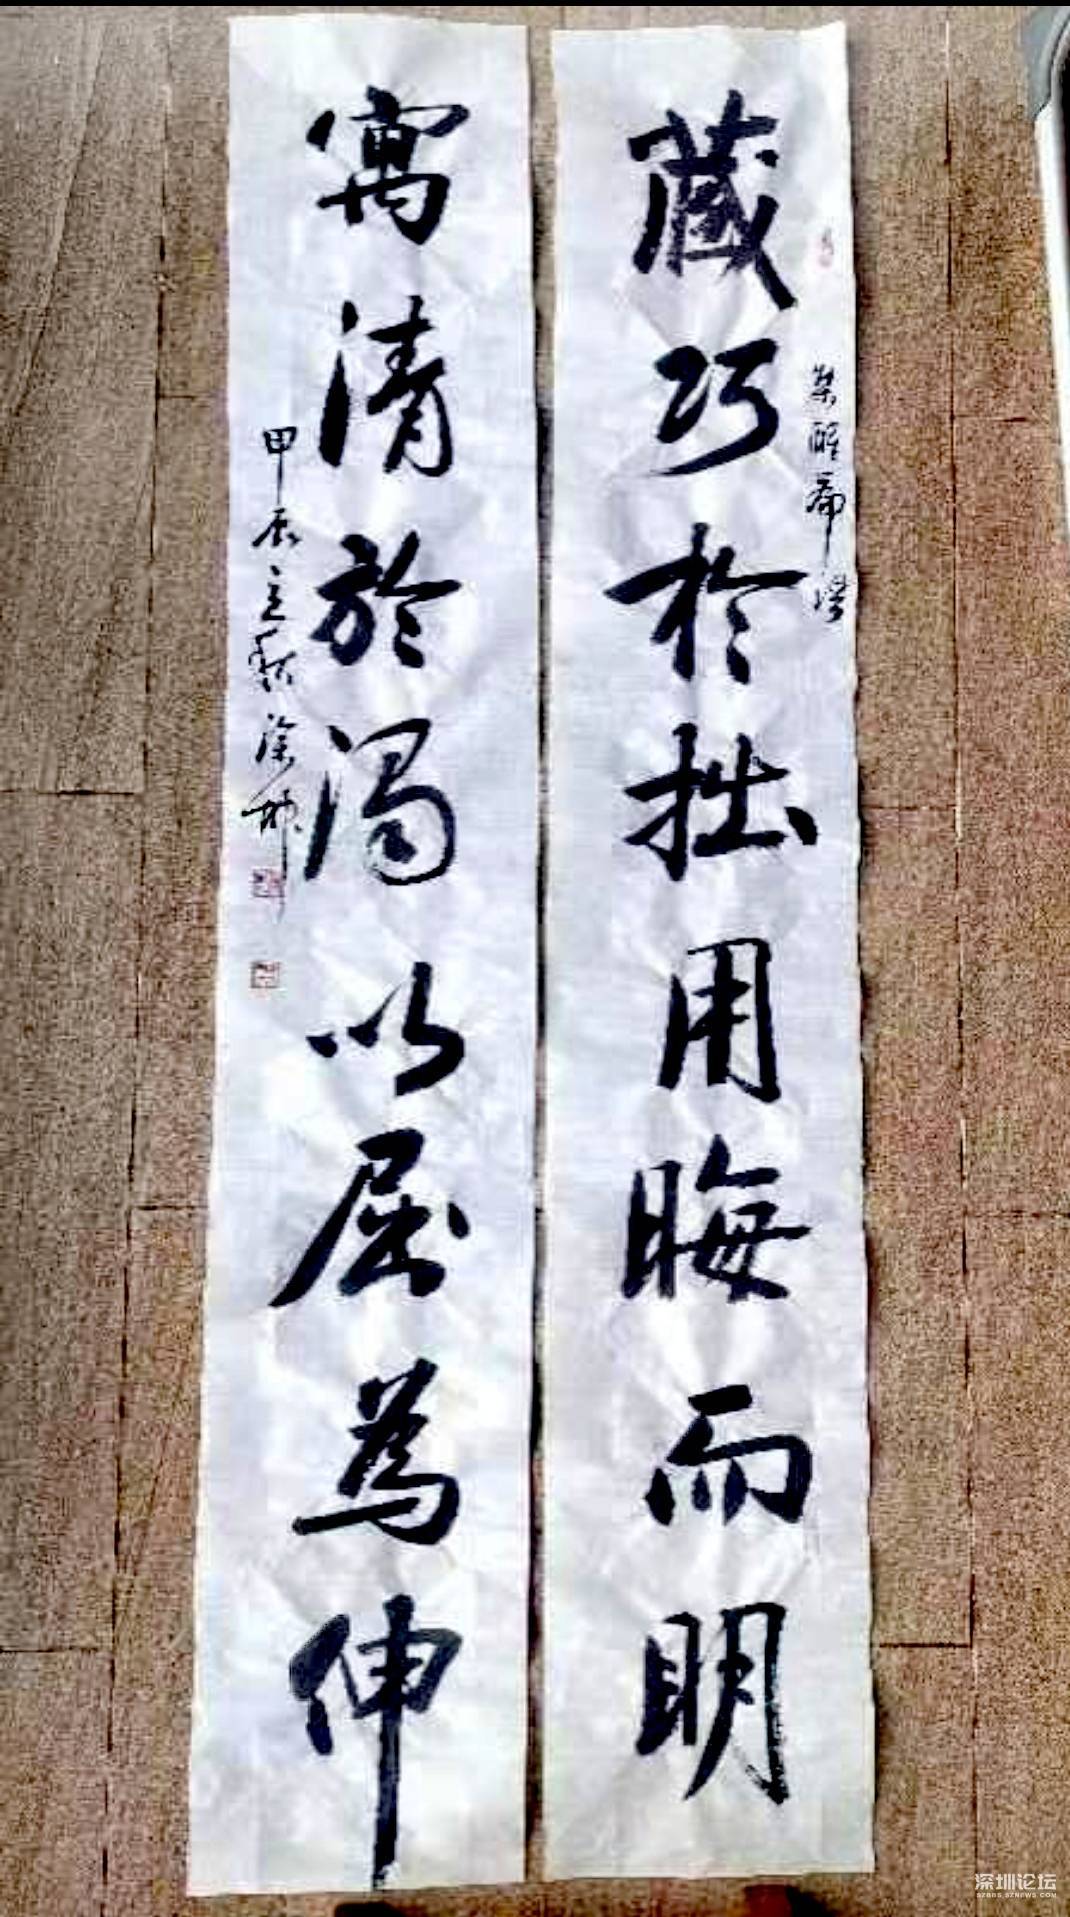 藏巧於拙用晦而明
寓清於濁以屈為伸
甲辰立秋
深圳论坛
SZBBS.SZNEWS.COM